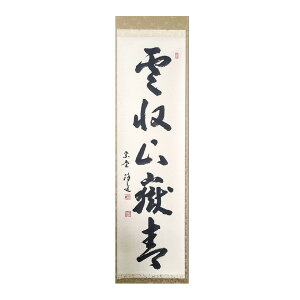 雲収山嶽青